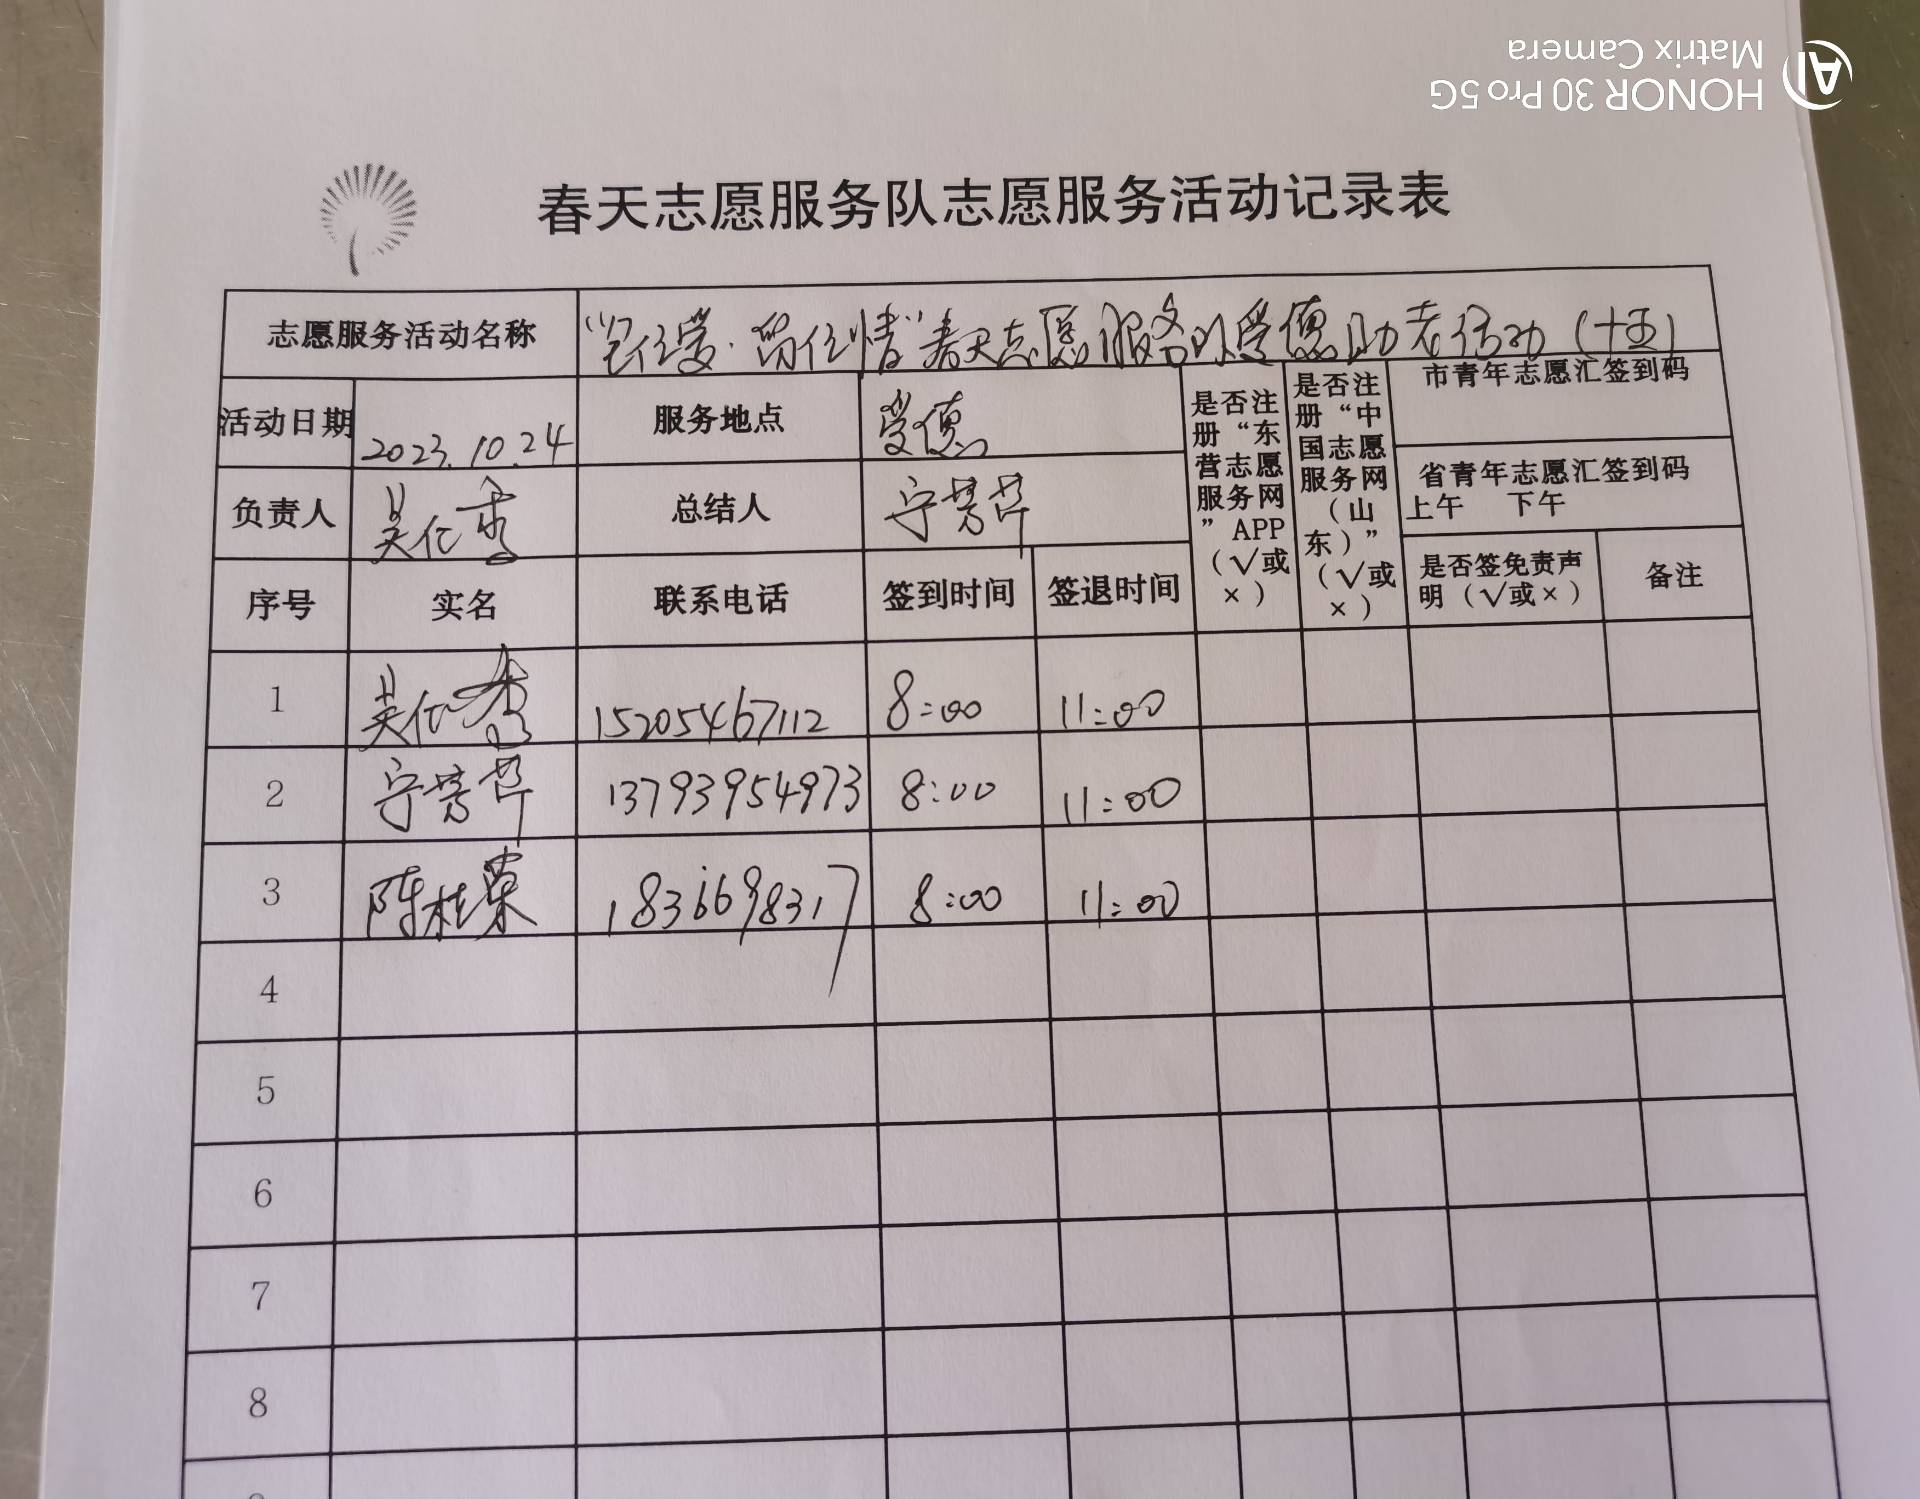 HONOR 30 Pro 5G
Matrix Camera
AI
春天志愿服务队志愿服务活动记录表
志愿服务活动名称 留住情”春天志愿服务队受德助老活动（十五）
活动日期 2023.10.24 服务地点 受德
负责人 吴仕香 总结人 宁芳芹
是否注册“东营志愿服务网”APP（√或×）
是否注册“中国志愿服务网（山东）”（√或×）
市青年志愿汇签到码
省青年志愿汇签到码
上午 下午
是否签免责声明（√或×） 备注
序号 实名 联系电话 签到时间 签退时间
1 吴仕香 15205467112 8:00 11:00
2 宁芳芹 13793954973 8:00 11:00
3 陈桂荣 18366698317 8:00 11:00
4
5
6
7
8